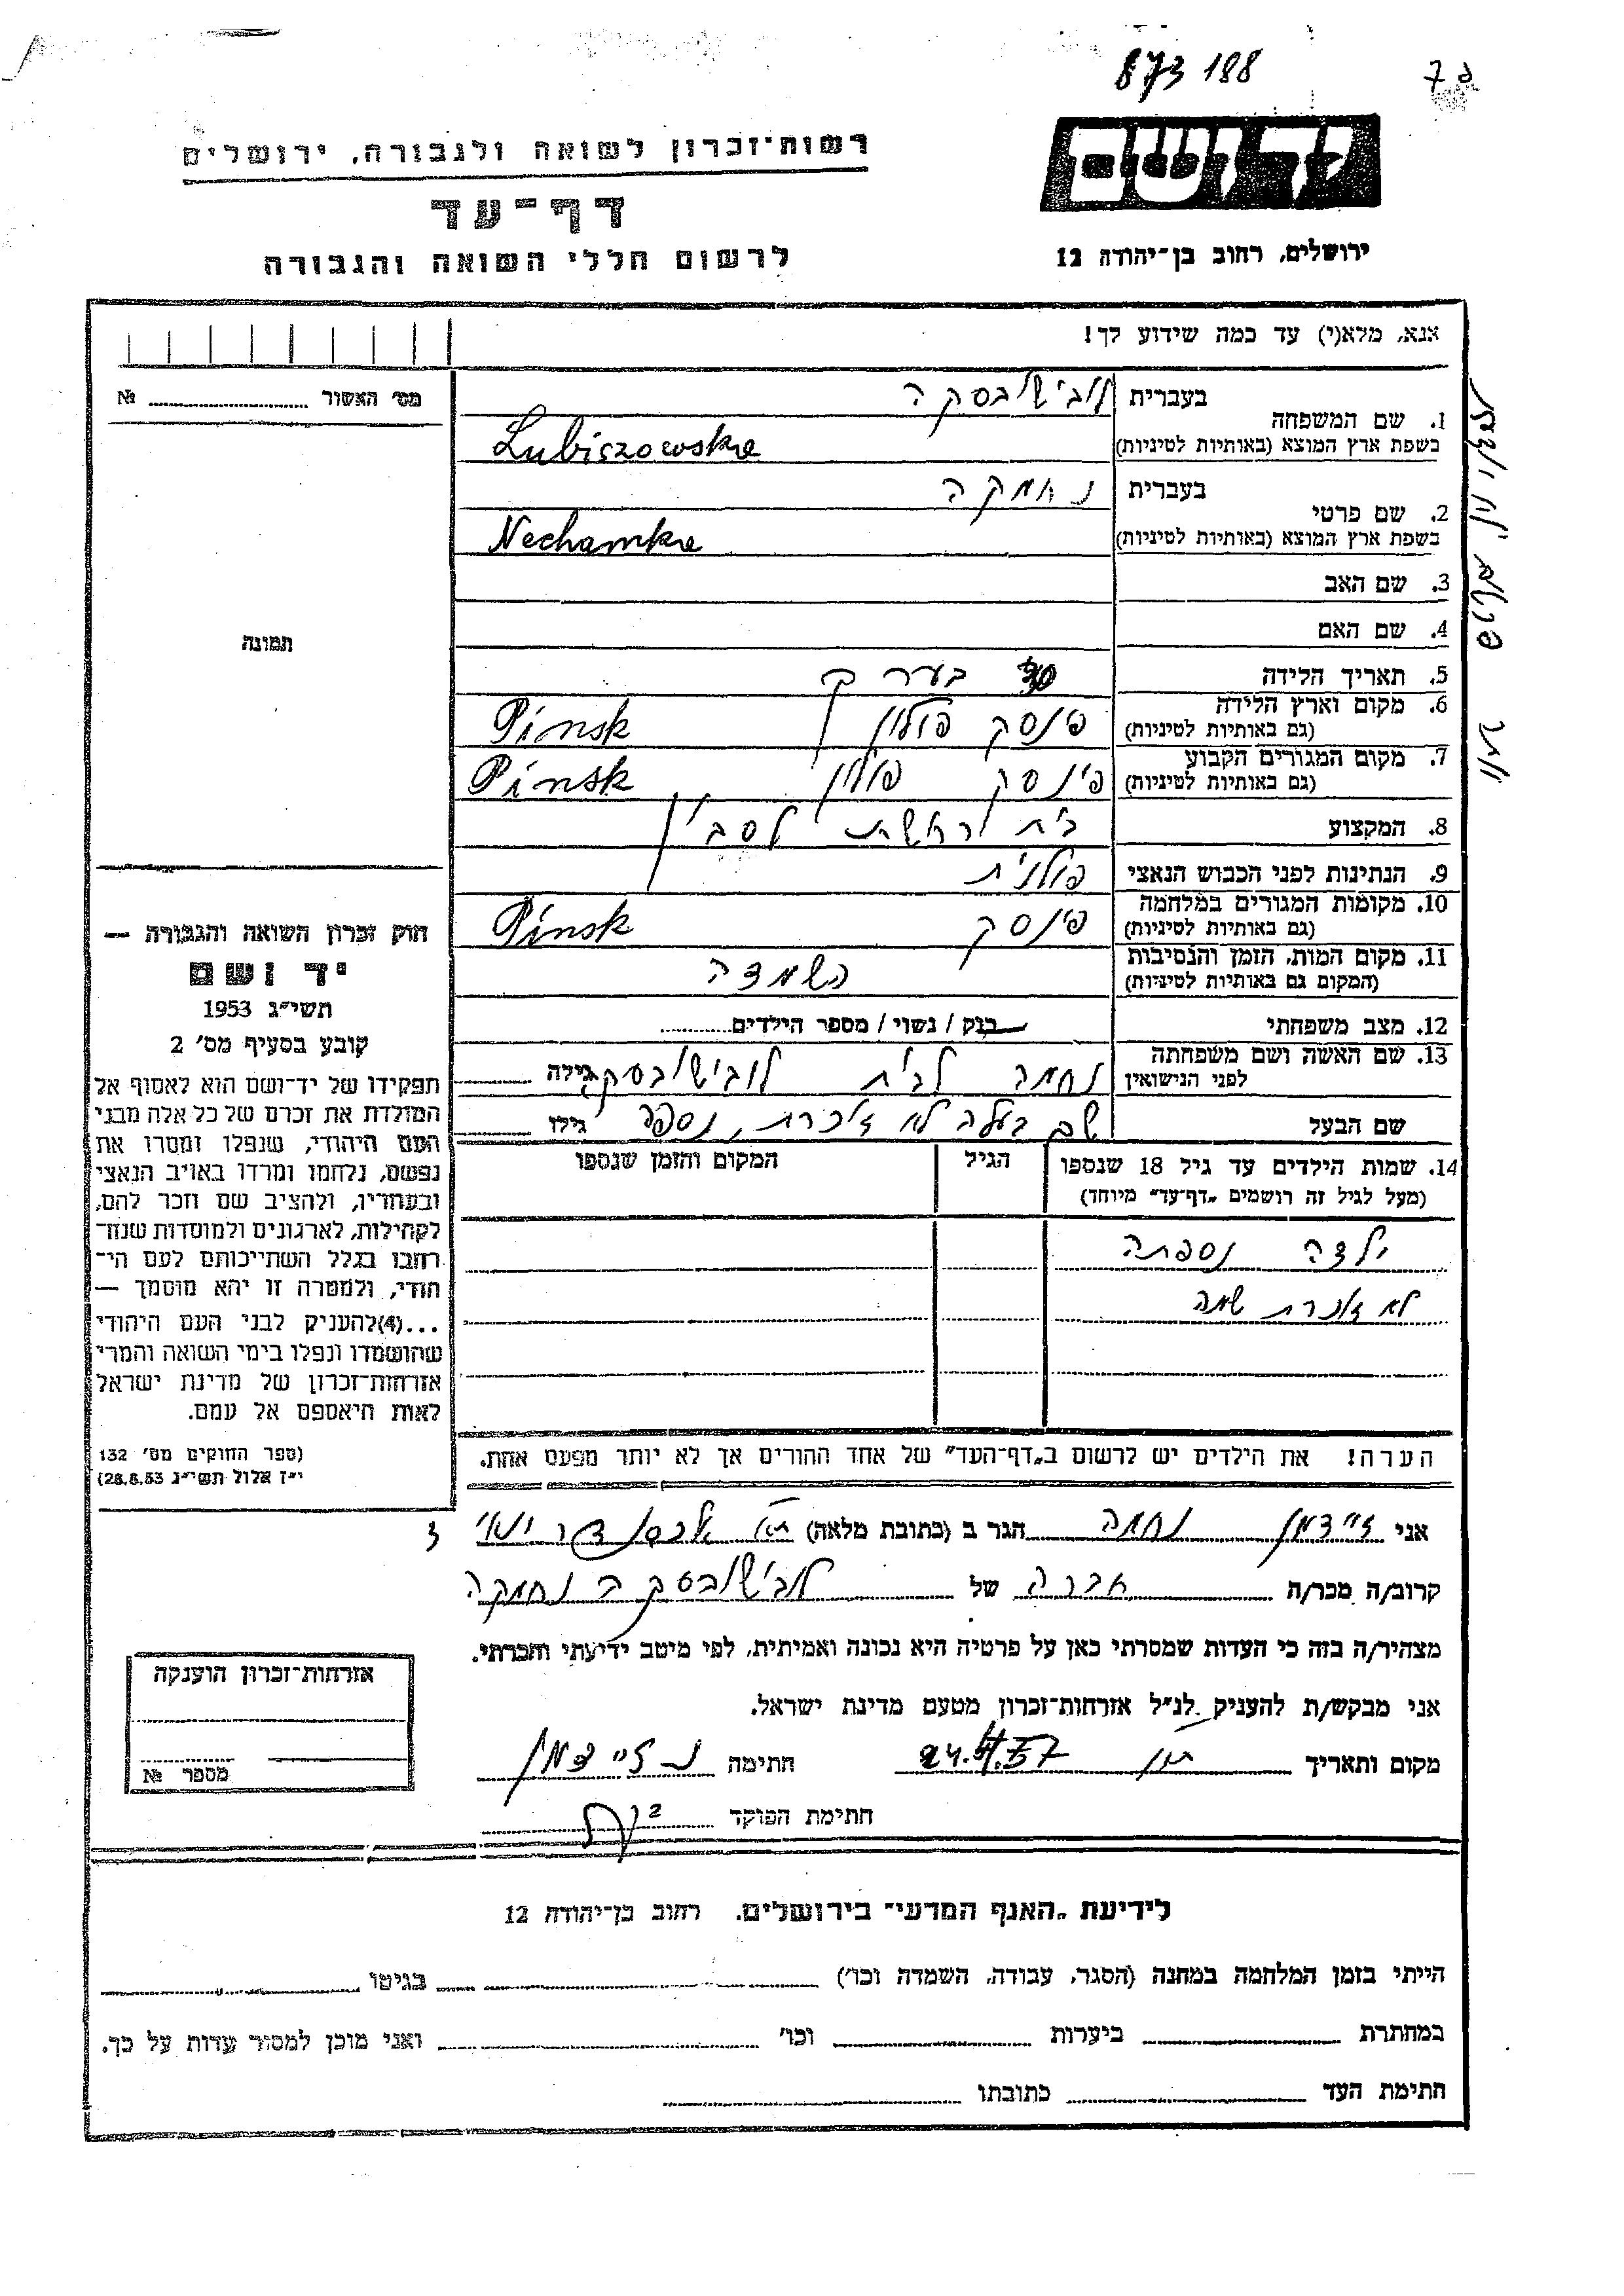 873 188
רשות־זכרון לשואה ולגבורה, ירושלים
דף־עד
לרשום חללי השואה והגבורה
ירושלים, רחוב בן־יהודה 12
אנא, מלא(י) עד כמה שידוע לך!
מס׳ האשור № 
1. שם המשפחה בעברית לובישובסקה
בשפת ארץ המוצא (באותיות לטיניות) Lubiszowska
2. שם פרטי בעברית נחמקה
בשפת ארץ המוצא (באותיות לטיניות) Nechamka
3. שם האב
4. שם האם
תמונה
5. תאריך הלידה בערך 30
6. מקום וארץ הלידה (גם באותיות לטיניות) פינסק פולין Pinsk
7. מקום המגורים הקבוע (גם באותיות לטיניות) פינסק פולין Pinsk
8. המקצוע בית חרושת
9. הנתינות לפני הכבוש הנאצי פולנית
10. מקומות המגורים במלחמה (גם באותיות לטיניות) פינסק Pinsk
11. מקום המות, הזמן והנסיבות (המקום גם באותיות לטיניות) השמדה
12. מצב משפחתי רווק / נשוי / מספר הילדים
13. שם האשה ושם משפחתה לפני הנישואין נחמה לבית לובישובסקי גילה
שם הבעל שם בעלה לא זוכרת, נספה גילו
14. שמות הילדים עד גיל 18 שנספו הגיל המקום והזמן שנספו
(מעל לגיל זה רושמים „דף־עד״ מיוחד)
ילדה נספתה
לא זוכרת שמה
חוק זכרון השואה והגבורה —
יד ושם
תשי״ג 1953
קובע בסעיף מס׳ 2
תפקידו של יד־ושם הוא לאסוף אל
המולדת את זכרם של כל אלה מבני
העם היהודי, שנפלו ומסרו את
נפשם, נלחמו ומרדו באויב הנאצי
ובעוזריו, ולהציב שם וזכר להם,
לקהילות, לארגונים ולמוסדות שנח־
רבו בגלל השתייכותם לעם הי־
הודי, ולמטרה זו יהא מוסמך —
...(4) להעניק לבני העם היהודי
שהושמדו ונפלו בימי השואה והמרי
אזרחות־זכרון של מדינת ישראל
לאות היאספם אל עמם.
(ספר החוקים מס׳ 132
י״ז אלול תשי״ג 28.8.53)
הערה! את הילדים יש לרשום ב„דף־העד״ של אחד ההורים אך לא יותר מפעם אחת.
אני זיידמן נחמה הגר ב (כתובת מלאה) 3
קרוב/ה מכר/ה חברה של לובישובסקה נחמקה
מצהיר/ה בזה כי העדות שמסרתי כאן על פרטיה היא נכונה ואמיתית, לפי מיטב ידיעתי והכרתי.
אני מבקש/ת להעניק לנ״ל אזרחות־זכרון מטעם מדינת ישראל.
מקום ותאריך 24.4.57 חתימה נ זיידמן
חתימת הפוקד
אזרחות־זכרון הוענקה
מספר №
לידיעת „האגף המדעי״ בירושלים, רחוב בן־יהודה 12
הייתי בזמן המלחמה במחנה (הסגר, עבודה, השמדה וכו׳) בגיטו
במחתרת ביערות וכו׳ ואני מוכן למסור עדות על כך.
חתימת העד כתובתו